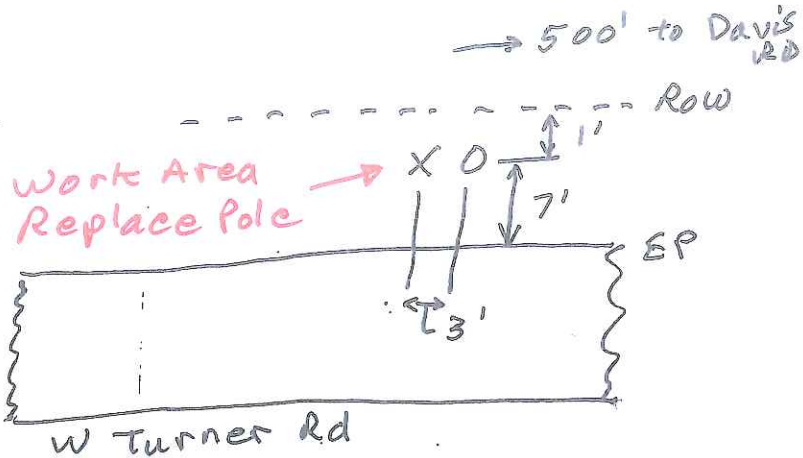 500' to Davis
RD
ROW
1'
X O
Work Area
Replace Pole
7'
EP
3'
W Turner Rd